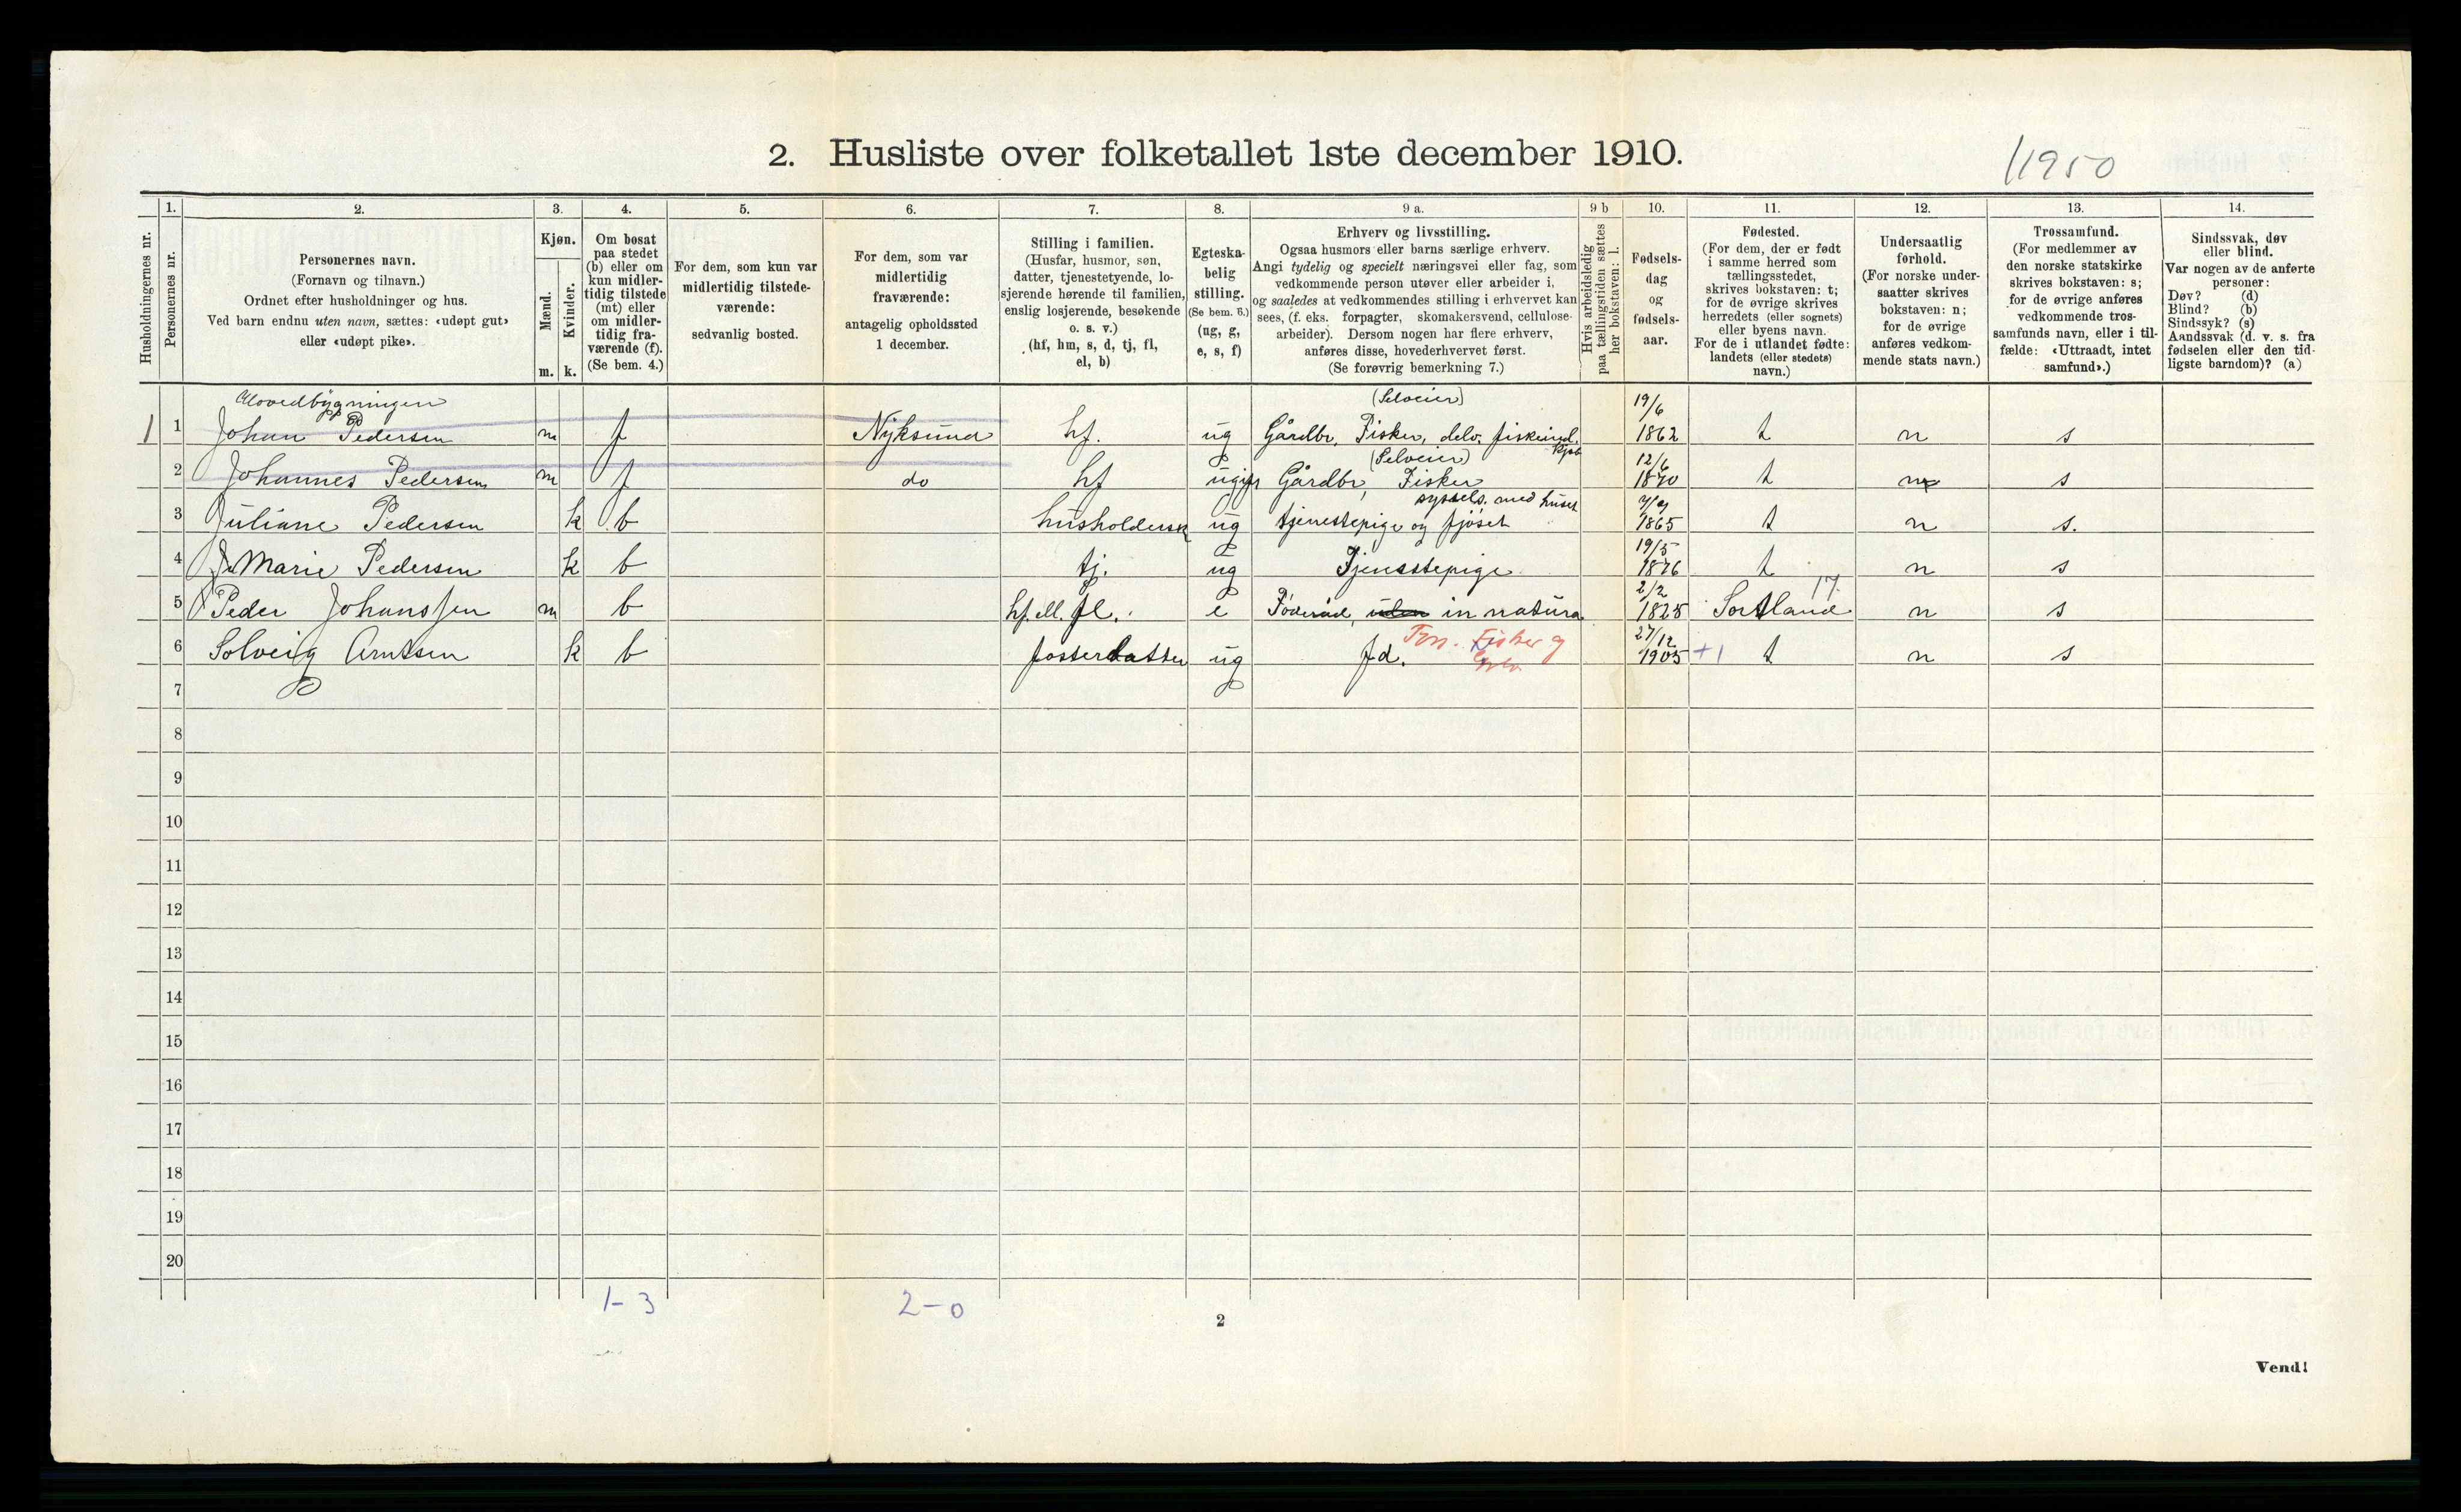 2. Husliste over folketallet 1ste december 1910.
11950
Husholdningernes nr.
1.
Personernes nr.
2.
Personernes navn.
(Fornavn og tilnavn.)
Ordnet efter husholdninger og hus.
Ved barn endnu uten navn, sættes: «udøpt gut»
eller «udøpt pike».
3.
Kjøn.
Mænd.
Kvinder.
m. k.
4.
Om bosat
paa stedet
(b) eller om
kun midler-
tidig tilstede
(mt) eller
om midler-
tidig fra-
værende (f).
(Se bem. 4.)
5.
For dem, som kun var
midlertidig tilstede-
værende:
sedvanlig bosted.
6.
For dem, som var
midlertidig
fraværende:
antagelig opholdssted
1 december.
7.
Stilling i familien.
(Husfar, husmor, søn,
datter, tjenestetyende, lo-
sjerende hørende til familien,
enslig losjerende, besøkende
o. s. v.)
(hf, hm, s, d, tj, fl,
el, b)
8.
Egteska-
belig
stilling.
(Se bem. 6.)
(ug, g,
e, s, f)
9 a.
Erhverv og livsstilling.
Ogsaa husmors eller barns særlige erhverv.
Angi tydelig og specielt næringsvei eller fag, som
vedkommende person utøver eller arbeider i,
og saaledes at vedkommendes stilling i erhvervet kan
sees, (f. eks. forpagter, skomakersvend, cellulose-
arbeider). Dersom nogen har flere erhverv,
anføres disse, hovederhvervet først.
(Se forøvrig bemerkning 7.)
9 b
Hvis arbeidsledig
paa tællingstiden sættes
her bokstaven: l.
10.
Fødsels-
dag
og
fødsels-
aar.
11.
Fødested.
(For dem, der er født
i samme herred som
tællingsstedet,
skrives bokstaven: t;
for de øvrige skrives
herredets (eller sognets)
eller byens navn.
For de i utlandet fødte:
landets (eller stedets)
navn.)
12.
Undersaatlig
forhold.
(For norske under-
saatter skrives
bokstaven: n;
for de øvrige
anføres vedkom-
mende stats navn.)
13.
Trossamfund.
(For medlemmer av
den norske statskirke
skrives bokstaven: s;
for de øvrige anføres
vedkommende tros-
samfunds navn, eller i til-
fælde: «Uttraadt, intet
samfund».)
14.
Sindssvak, døv
eller blind.
Var nogen av de anførte
personer:
Døv? (d)
Blind? (b)
Sindssyk? (s)
Aandssvak (d. v. s. fra
fødselen eller den tid-
ligste barndom)? (a)
Hovedbygningen (Selveier) 19/6
1 1 Johan Pedersen m f Nyksund hf. ug Gårdbr, Fisker, delv. 1862 t n s
(Selveier) 12/6
2 Johannes Pedersen m f do hf Gårdbr, Fisker 1870 t n s
syssels. med huset
3 Juliane Pedersen k b husholdersk ug tjenestepige og fjøset 1865 t n s.
19/5
4 Marie Pedersen k b tj. ug Tjenestepige 1876 t n s
2/2 17
5 Peder Johanssen m b hf. ell. fl. e Föderåd, in natura 1825 Sortland n s
Fisker og 27/12
6 Solveig Arntsen k b fosterdatter ug fd. 1905 +1 t n s
7
8
9
10
11
12
13
14
15
16
17
18
19
20
1-3 2-0
2
Vend!